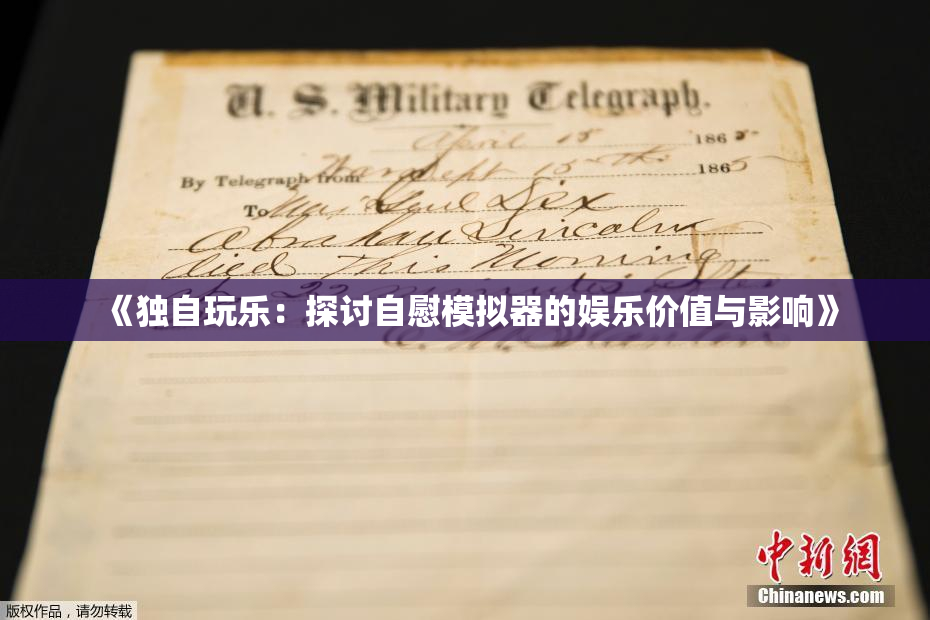 U. S. Military Telegraph.
April 15 1865
By Telegraph from War Dept 15th 1865
To Maj Genl Dix
Abraham Lincoln
died This Morning
at 22 minutes after
《独自玩乐：探讨自慰模拟器的娱乐价值与影响》
中新网
Chinanews.com
版权作品，请勿转载